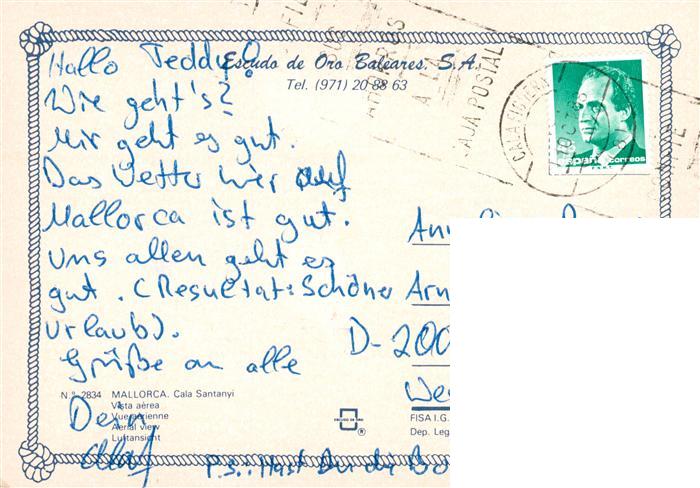 Hallo Teddy!
Escudo de Oro Baleares, S.A.
Tel. (971) 20 88 63
Wie geht's?
Mir geht es gut.
Das Wetter hier auf
Mallorca ist gut.
Uns allen geht es
gut. (Resultat: Schöner
Urlaub).
Grüße an alle
Dein
Olaf
P.S.: Hast Du die
Arn
D-200
We
N.º 2834 MALLORCA. Cala Santanyi
Vista aérea
Vue aérienne
Aerial view
Luftansicht
ESCUDO DE ORO
®
FISA I.G.
Dep. Leg
CAJA POSTAL
españa correos